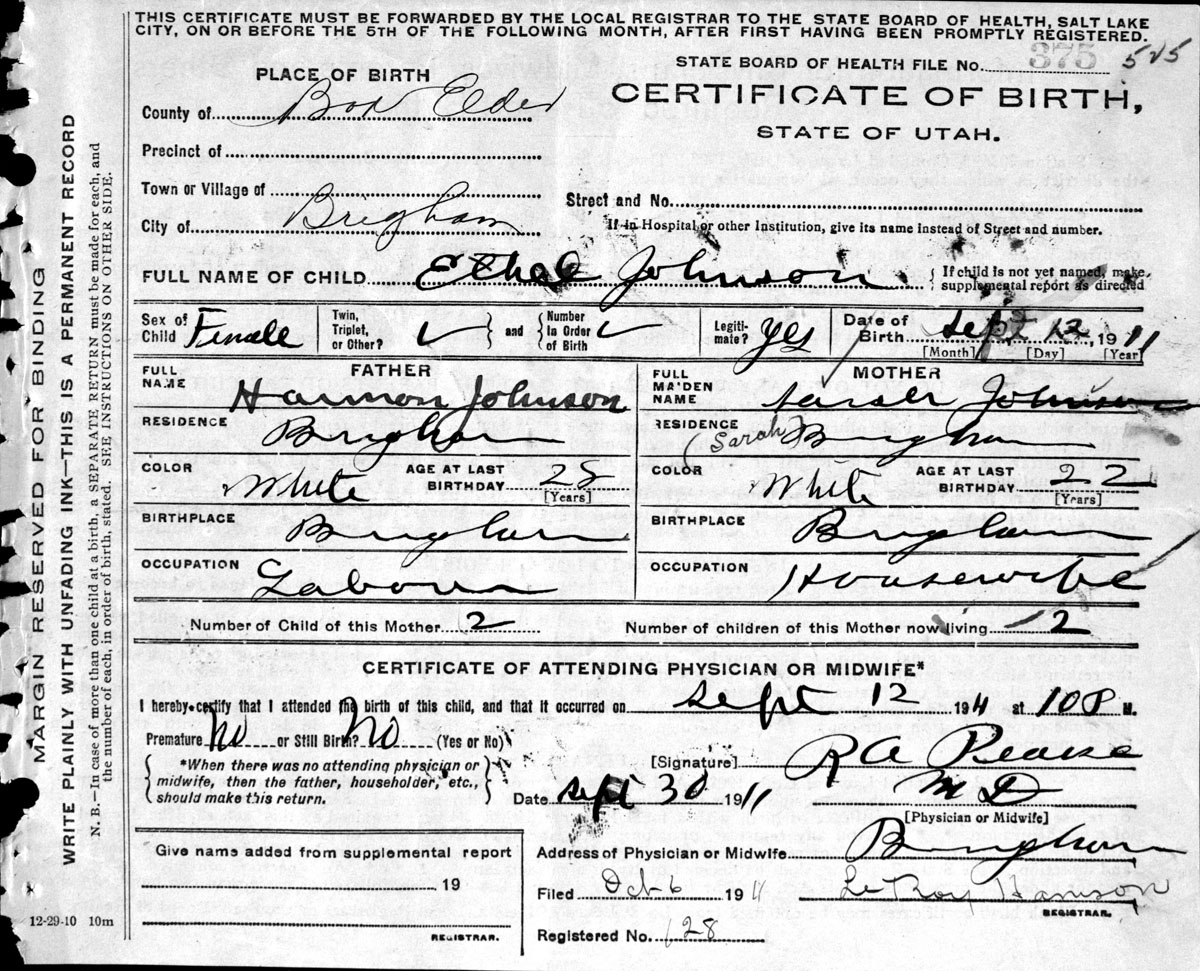 THIS CERTIFICATE MUST BE FORWARDED BY THE LOCAL REGISTRAR TO THE STATE BOARD OF HEALTH, SALT LAKE
CITY, ON OR BEFORE THE 5TH OF THE FOLLOWING MONTH, AFTER FIRST HAVING BEEN PROMPTLY REGISTERED.
STATE BOARD OF HEALTH FILE NO. 375 525
PLACE OF BIRTH
CERTIFICATE OF BIRTH,
STATE OF UTAH.
County of Box Elder
Precinct of
Town or Village of
City of Brigham
Street and No.
If in Hospital or other Institution, give its name instead of Street and number.
FULL NAME OF CHILD Ethel Johnson { If child is not yet named, make
supplemental report as directed
Sex of Child Female
Twin, Triplet, or Other? } and { Number In Order of Birth
Legiti-mate? Yes
Date of Birth Sept 12, 1911
[Month] [Day] [Year]
FATHER
FULL NAME Harmon Johnson
RESIDENCE Brigham
COLOR White
AGE AT LAST BIRTHDAY 25
[Years]
BIRTHPLACE Brigham
OCCUPATION Laborer
MOTHER
FULL MAIDEN NAME Sarah Johnson
(Sarah)
RESIDENCE Brigham
COLOR White
AGE AT LAST BIRTHDAY 22
[Years]
BIRTHPLACE Brigham
OCCUPATION Housewife
Number of Child of this Mother 2
Number of children of this Mother now living 2
CERTIFICATE OF ATTENDING PHYSICIAN OR MIDWIFE*
I hereby certify that I attended the birth of this child, and that it occurred on Sept 12 1911 at 10 P M.
Premature No or Still Birth? No (Yes or No)
{ *When there was no attending physician or
midwife, then the father, householder, etc.,
should make this return. }
[Signature] R A Pearse
M D
[Physician or Midwife]
Date Sept 30 1911
Give name added from supplemental report
19
REGISTRAR.
Address of Physician or Midwife Brigham
Filed Oct 6 1911 LeRoy Hanson
REGISTRAR.
Registered No. 128
12-29-10 10m
MARGIN RESERVED FOR BINDING
WRITE PLAINLY WITH UNFADING INK—THIS IS A PERMANENT RECORD
N. B.—In case of more than one child at a birth, a SEPARATE RETURN must be made for each, and
the number of each, in order of birth, stated. SEE INSTRUCTIONS ON OTHER SIDE.